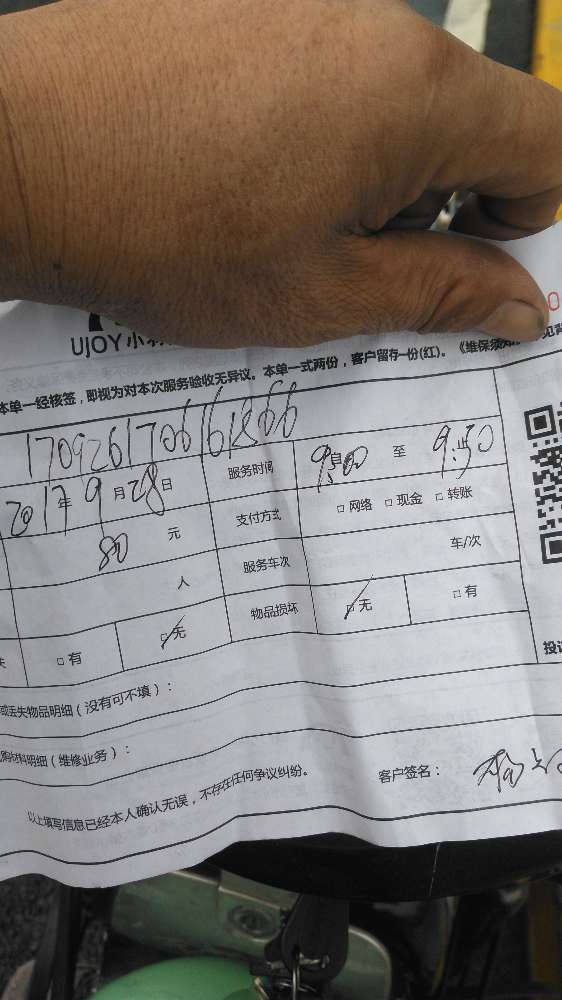 UJOY小
本单一经核签，即视为对本次服务验收无异议。本单一式两份，客户留存一份(红)。《维保须
17092617066161866
2017年9月28日 服务时间 9:00 至 9:50
80 元 支付方式 □网络 □现金 □转账
人 服务车次 车/次
□有 □无 物品损坏 □无 □有
丢失物品明细（没有可不填）：
材料明细（维修业务）：
以上填写信息已经本人确认无误，不存在任何争议纠纷。 客户签名：